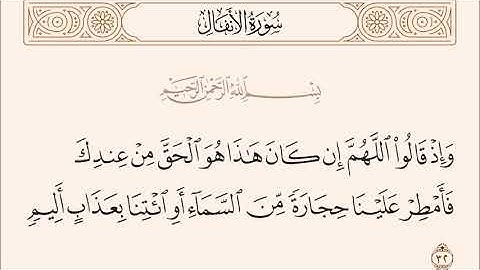 سُورَةُ الأَنفَالِ
بِسْمِ اللَّهِ الرَّحْمَٰنِ الرَّحِيمِ
وَإِذْ قَالُوا۟ اللَّهُمَّ إِن كَانَ هَٰذَا هُوَ الْحَقَّ مِنْ عِندِكَ
فَأَمْطِرْ عَلَيْنَا حِجَارَةً مِّنَ السَّمَآءِ أَوِ ائْتِنَا بِعَذَابٍ أَلِيمٍ
٣٢